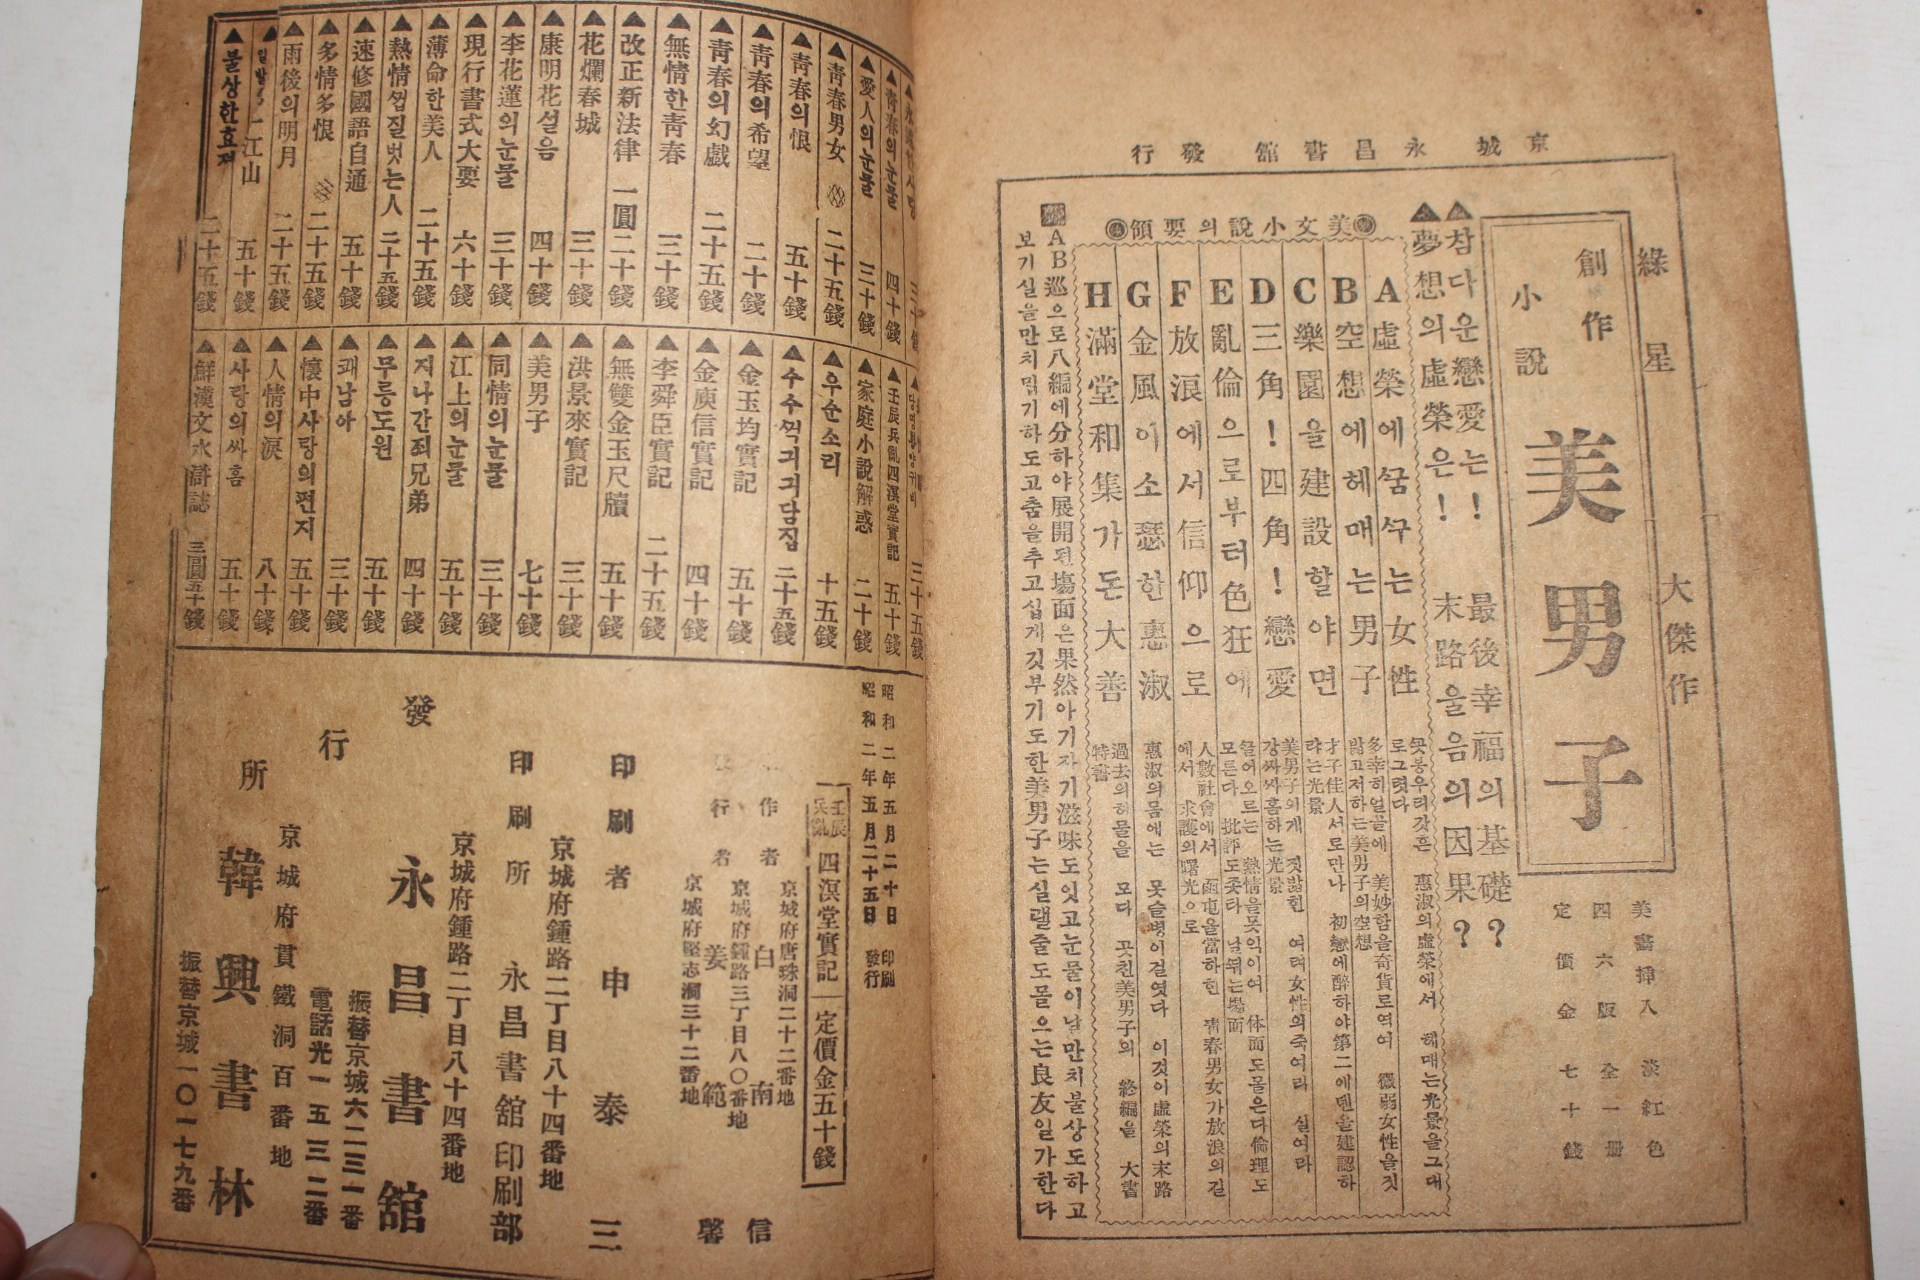 京城 永昌書館 發行
綠星 大傑作
創作
小說
美男子
美畵揷入 淡紅色
四六版 全一冊
定價金 七十錢
▲참다운戀愛는! 最後幸福의基礎?
▲夢想의虛榮은! 末路을음의因果?
美文小說의要領
A 虛榮에꿈꾸는女性
B 空想에헤매는男子
C 樂園을建設할야면
D 三角!四角!戀愛
E 亂倫으로부터色狂에
F 放浪에서信仰으로
G 金風이소瑟한惠淑
H 滿堂和集가돈大善
꼿봉우리갓흔 惠淑의虛榮에서 헤매는光景을그대
로그렷다
多幸히얼골에 美妙함을奇貨로역여 微弱女性을짓
밟고저하는美男子의空想
才子佳人서로만나 初戀에醉하야第二에덴을建設하
랴는光景
美男子의게 짓밟힌 여러女性의죽여라 실여라
강짜싸홈하는光景
끌어오르는 熱情을못익이여 体面도몰은다倫理도
모른다 批評도좃타 날뛰는場面
人數社會에서 逼迫을當하흔 靑春男女가放浪의길
에서 求護의曙光으로
惠淑의몸에는 못슬병이걸엿다 이것이虛榮의末路
過去의허물을 모다 곳친美男子의 終編을 大書
特書
AB巡으로八編에分하야展開된場面은果然아기자기滋味도잇고눈물이날만치불상도하고
보기실을만치밉기하도고춤을추고십게깃부기도한美男子는실낼줄도몰으는良友일가한다
▲愛人의눈물 三十錢
▲靑春男女 二十五錢
▲靑春의恨 五十錢
▲靑春의希望 二十錢
▲靑春의幻戲 二十五錢
▲無情한靑春 三十錢
▲改正新法律 一圓二十錢
▲花爛春城 三十錢
▲康明花설음 四十錢
▲李花蓮의눈물 三十錢
▲現行書式大要 六十錢
▲薄命한美人 二十五錢
▲熱情껍질벗는人 二十五錢
▲速修國語自通 五十錢
▲多情多恨 二十五錢
▲雨後의明月 二十五錢
江山 五十錢
▲불상한효져 二十五錢
▲壬辰兵亂四溟堂實記 五十錢
▲家庭小說解惑 二十錢
▲우순소리 十五錢
▲수수꺽기기담집 二十五錢
▲金玉均實記 五十錢
▲金庾信實記 四十錢
▲李舜臣實記 二十五錢
▲無雙金玉尺牘 五十錢
▲洪景來實記 三十錢
▲美男子 七十錢
▲同情의눈물 三十錢
▲江上의눈물 五十錢
▲지나간죄兄弟 四十錢
▲무릉도원 五十錢
▲쾌남아 三十錢
▲懷中사랑의편지 五十錢
▲人情의淚 八十錢
▲사랑의싸홈 五十錢
▲鮮漢文水滸誌 三圓五十錢
昭和二年五月二十日 印刷
昭和二年五月二十五日 發行
壬辰兵亂 四溟堂實記 定價金五十錢
京城府唐珠洞二十二番地
作者 白南信
京城府鍾路三丁目八〇番地
發行者 姜範馨
京城府堅志洞三十二番地
印刷者 申泰三
京城府鍾路二丁目八十四番地
印刷所 永昌書舘印刷部
京城府鍾路二丁目八十四番地
發行所
永昌書舘
振替京城六二三一番
電話光一五三二番
京城府貫鐵洞百番地
韓興書林
振替京城一〇一七九番